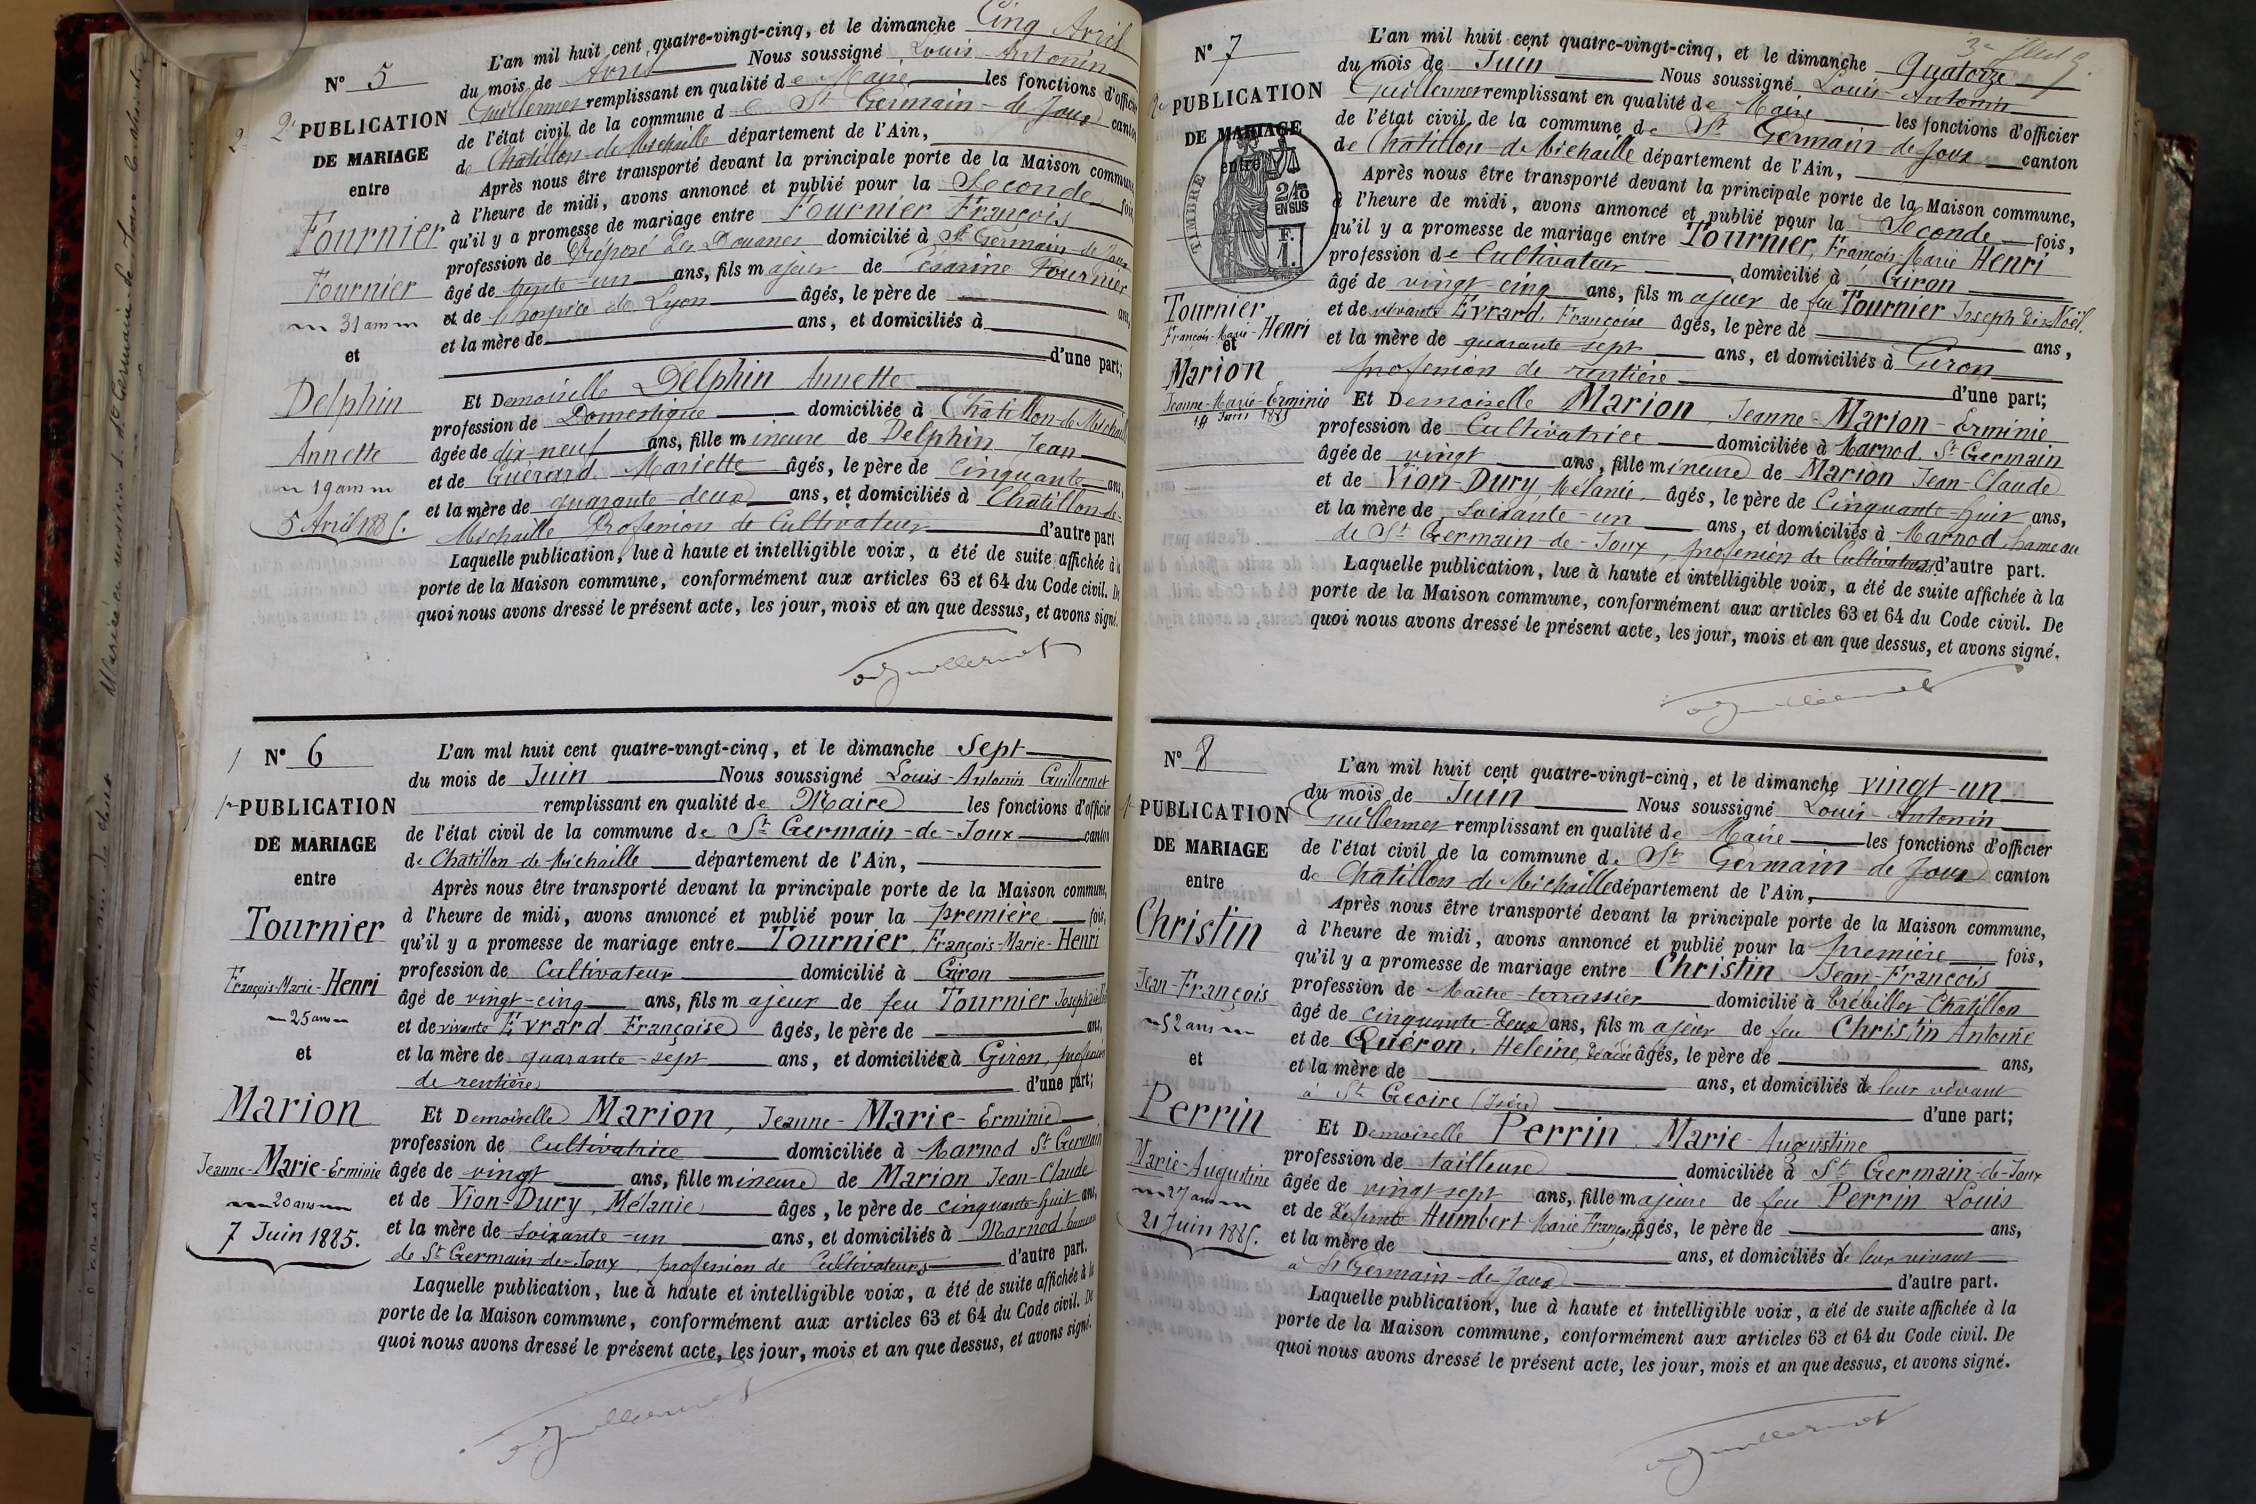 N° 5
2e PUBLICATION
DE MARIAGE
entre
Fournier
Fournier
31 ans
et
Delphin
Annette
19 ans
5 Avril 1885.
L'an mil huit cent quatre-vingt-cinq, et le dimanche Cinq Avril
du mois de Avril Nous soussigné Louis-Antonin
Guillermet remplissant en qualité de Maire les fonctions d'officier
de l'état civil de la commune de St Germain-de-Joux canton
de Chatillon-de-Michaille département de l'Ain,
Après nous être transporté devant la principale porte de la Maison commune,
à l'heure de midi, avons annoncé et publié pour la Seconde fois,
qu'il y a promesse de mariage entre Fournier François
profession de Préposé des Douanes domicilié à St Germain-de-Joux
âgé de trente-un ans, fils majeur de Fournier
et de l'hospice de Lyon âgés, le père de ans,
et la mère de ans, et domiciliés à
d'une part;
Et Demoiselle Delphin Annette
profession de Domestique domiciliée à Châtillon-de-Michaille
âgée de dix-neuf ans, fille mineure de Delphin Jean
et de Guérard Mariette âgés, le père de Cinquante ans,
et la mère de quarante-deux ans, et domiciliés à Chatillon-de-
Michaille Profession de Cultivateur d'autre part
Laquelle publication, lue à haute et intelligible voix, a été de suite affichée à la
porte de la Maison commune, conformément aux articles 63 et 64 du Code civil. De
quoi nous avons dressé le présent acte, les jour, mois et an que dessus, et avons signé.
Guillermet
N° 6
1re PUBLICATION
DE MARIAGE
entre
Tournier
François-Marie-Henri
25 ans
et
Marion
Jeanne-Marie-Erminie
20 ans
7 Juin 1885.
L'an mil huit cent quatre-vingt-cinq, et le dimanche Sept
du mois de Juin Nous soussigné Louis-Antonin Guillermet
remplissant en qualité de Maire les fonctions d'officier
de l'état civil de la commune de St Germain-de-Joux canton
de Chatillon-de-Michaille département de l'Ain,
Après nous être transporté devant la principale porte de la Maison commune,
à l'heure de midi, avons annoncé et publié pour la première fois,
qu'il y a promesse de mariage entre Tournier François-Marie-Henri
profession de Cultivateur domicilié à Giron
âgé de vingt-cinq ans, fils majeur de feu Tournier Joseph
et de vivante Evrard Françoise âgés, le père de ans,
et la mère de quarante-sept ans, et domiciliés à Giron, profession
de rentière d'une part;
Et Demoiselle Marion, Jeanne-Marie-Erminie
profession de Cultivatrice domiciliée à Marnod St Germain
âgée de vingt ans, fille mineure de Marion Jean-Claude
et de Vion-Dury, Mélanie âges, le père de cinquante-huit ans,
et la mère de soixante-un ans, et domiciliés à Marnod hameau
de St Germain-de-Joux, profession de Cultivateurs d'autre part.
Laquelle publication, lue à haute et intelligible voix, a été de suite affichée à la
porte de la Maison commune, conformément aux articles 63 et 64 du Code civil. De
quoi nous avons dressé le présent acte, les jour, mois et an que dessus, et avons signé.
Guillermet
N° 7
2e PUBLICATION
DE MARIAGE
entre
TIMBRE
2/10
EN SUS
F.
1.
Tournier
François-Marie-Henri
et
Marion
Jeanne-Marie-Erminie
14 Juin 1885
L'an mil huit cent quatre-vingt-cinq, et le dimanche Quatorze
du mois de Juin Nous soussigné Louis-Antonin
Guillermet remplissant en qualité de Maire les fonctions d'officier
de l'état civil de la commune de St Germain-de-Joux canton
de Chatillon-de-Michaille département de l'Ain,
Après nous être transporté devant la principale porte de la Maison commune,
à l'heure de midi, avons annoncé et publié pour la Seconde fois,
qu'il y a promesse de mariage entre Tournier, François-Marie Henri
profession de Cultivateur domicilié à Giron
âgé de vingt-cinq ans, fils majeur de feu Tournier Joseph Noël
et de vivante Evrard, Françoise âgés, le père de ans,
et la mère de quarante-sept ans, et domiciliés à Giron
profession de rentière d'une part;
Et Demoiselle Marion, Jeanne-Marion-Erminie
profession de Cultivatrice domiciliée à Marnod. St Germain
âgée de vingt ans, fille mineure de Marion Jean-Claude
et de Vion-Dury, Mélanie âgés, le père de Cinquante-huit ans,
et la mère de Soixante-un ans, et domiciliés à Marnod, hameau
de St Germain-de-Joux, profession de Cultivateurs d'autre part.
Laquelle publication, lue à haute et intelligible voix, a été de suite affichée à la
porte de la Maison commune, conformément aux articles 63 et 64 du Code civil. De
quoi nous avons dressé le présent acte, les jour, mois et an que dessus, et avons signé.
Guillermet
N° 8
1re PUBLICATION
DE MARIAGE
entre
Christin
Jean-François
52 ans
et
Perrin
Marie-Augustine
27 ans
21 Juin 1885.
L'an mil huit cent quatre-vingt-cinq, et le dimanche vingt-un
du mois de Juin Nous soussigné Louis-Antonin
Guillermet remplissant en qualité de Maire les fonctions d'officier
de l'état civil de la commune de St Germain-de-Joux canton
de Chatillon-de-Michaille département de l'Ain,
Après nous être transporté devant la principale porte de la Maison commune,
à l'heure de midi, avons annoncé et publié pour la première fois,
qu'il y a promesse de mariage entre Christin Jean-François
profession de Maître-terrassier domicilié à Trébillet-Châtillon
âgé de cinquante-deux ans, fils majeur de feu Christin Antoine
et de Quéron, Héleine, âgés, le père de ans,
et la mère de ans, et domiciliés de leur vivant
à St Geoire (Isère) d'une part;
Et Demoiselle Perrin, Marie-Augustine
profession de tailleuse domiciliée à St Germain-de-Joux
âgée de vingt-sept ans, fille majeure de feu Perrin Louis
et de défunte Humbert Marie Françoise âgés, le père de ans,
et la mère de ans, et domiciliés de leur vivant
à St Germain-de-Joux d'autre part.
Laquelle publication, lue à haute et intelligible voix, a été de suite affichée à la
porte de la Maison commune, conformément aux articles 63 et 64 du Code civil. De
quoi nous avons dressé le présent acte, les jour, mois et an que dessus, et avons signé.
Guillermet